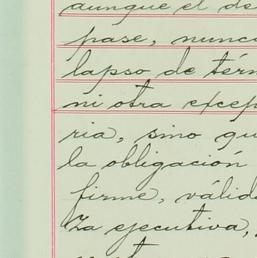 aunque el de
pase, nunca
lapso de térm
ni otra excep
ria, sino qu
la obligación
firme, válid
za ejecutiva,